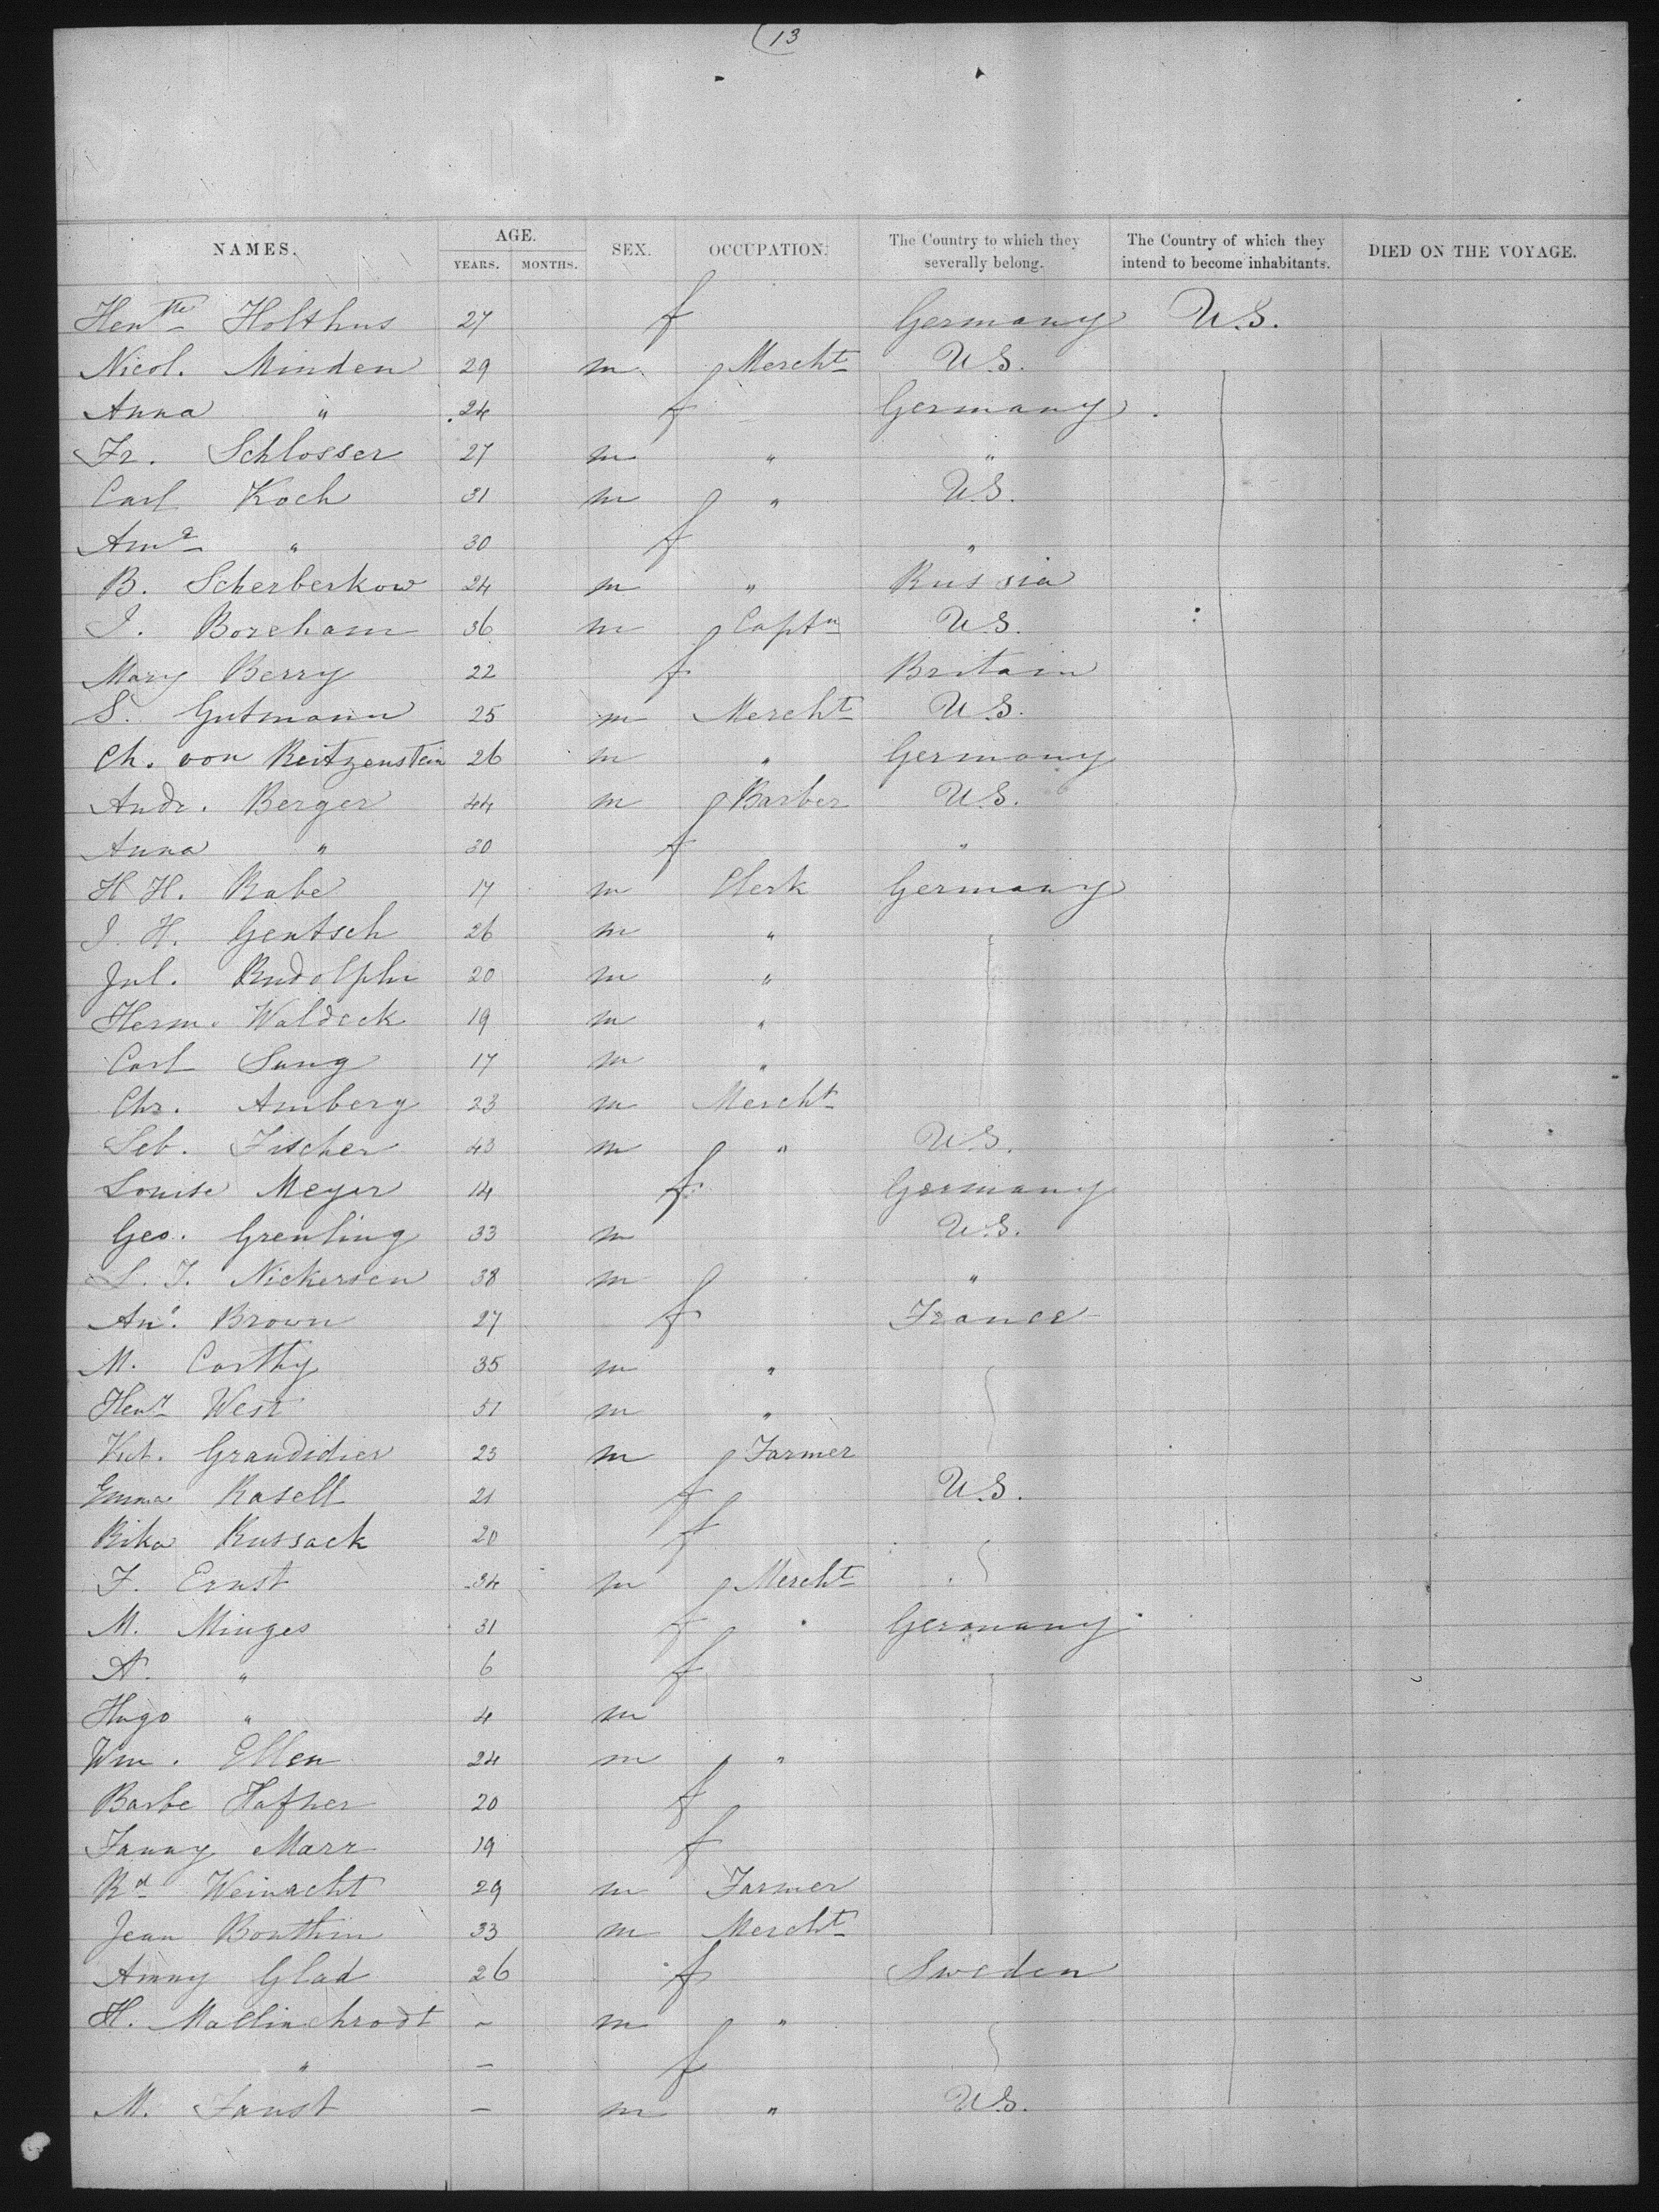 (13
NAMES. AGE. SEX. OCCUPATION. The Country to which they severally belong. The Country of which they intend to become inhabitants. DIED ON THE VOYAGE.
YEARS. MONTHS.
Hentte Holthus 27 f Germany U.S.
Nicol. Minden 29 m Mercht U.S.
Anna " 24 f Germany
Fr. Schlosser 27 m " "
Carl Koch 31 m " U.S.
Ama " 30 f "
B. Scherberkow 24 m " Russia
J. Boreham 36 m Captn U.S.
Mary Berry 22 f Britain
S. Gutmann 25 m Mercht U.S.
Ch. von Reitzenstein 26 m " Germany
Andr. Berger 44 m Barber U.S.
Anna " 30 f "
H. H. Rabe 17 m Clerk Germany
J. H. Gentsch 26 m "
Jul. Rudolphi 20 m "
Herm. Waldeck 19 m "
Carl Sang 17 m "
Chr. Amberg 23 m Mercht
Seb. Fischer 43 m " U.S.
Louise Meyer 14 f Germany
Geo. Grenling 33 m U.S.
L. J. Nickersen 38 m "
An. Brown 27 f France
M. Carthy 35 m "
Heny West 51 m "
Vict. Grandidier 23 m Farmer
Emma Rasell 21 f U.S.
Rika Russack 20 f
F. Ernst 34 m Mercht
M. Minges 31 f Germany
A. " 6 f
Hugo " 4 m
Wm. Ellen 24 m "
Barbe Hafner 20 f
Fanny Marr 19 f
Rd Weinacht 29 m Farmer
Jean Bonthin 33 m Mercht
Amny Glad 26 f Sweden
H. Mallinchrodt - m "
" - f
M. Faust - m " U.S.